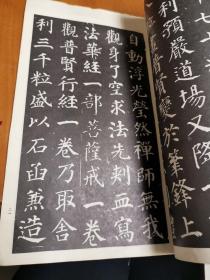 利預嚴道場又降
賢變於筆鋒上
自動浮光瑩然禪師無我
觀身了空求法先刾血寫
法華經一部菩薩戒一卷
觀普賢行經一卷乃取舍
利三千粒盛以石函兼造